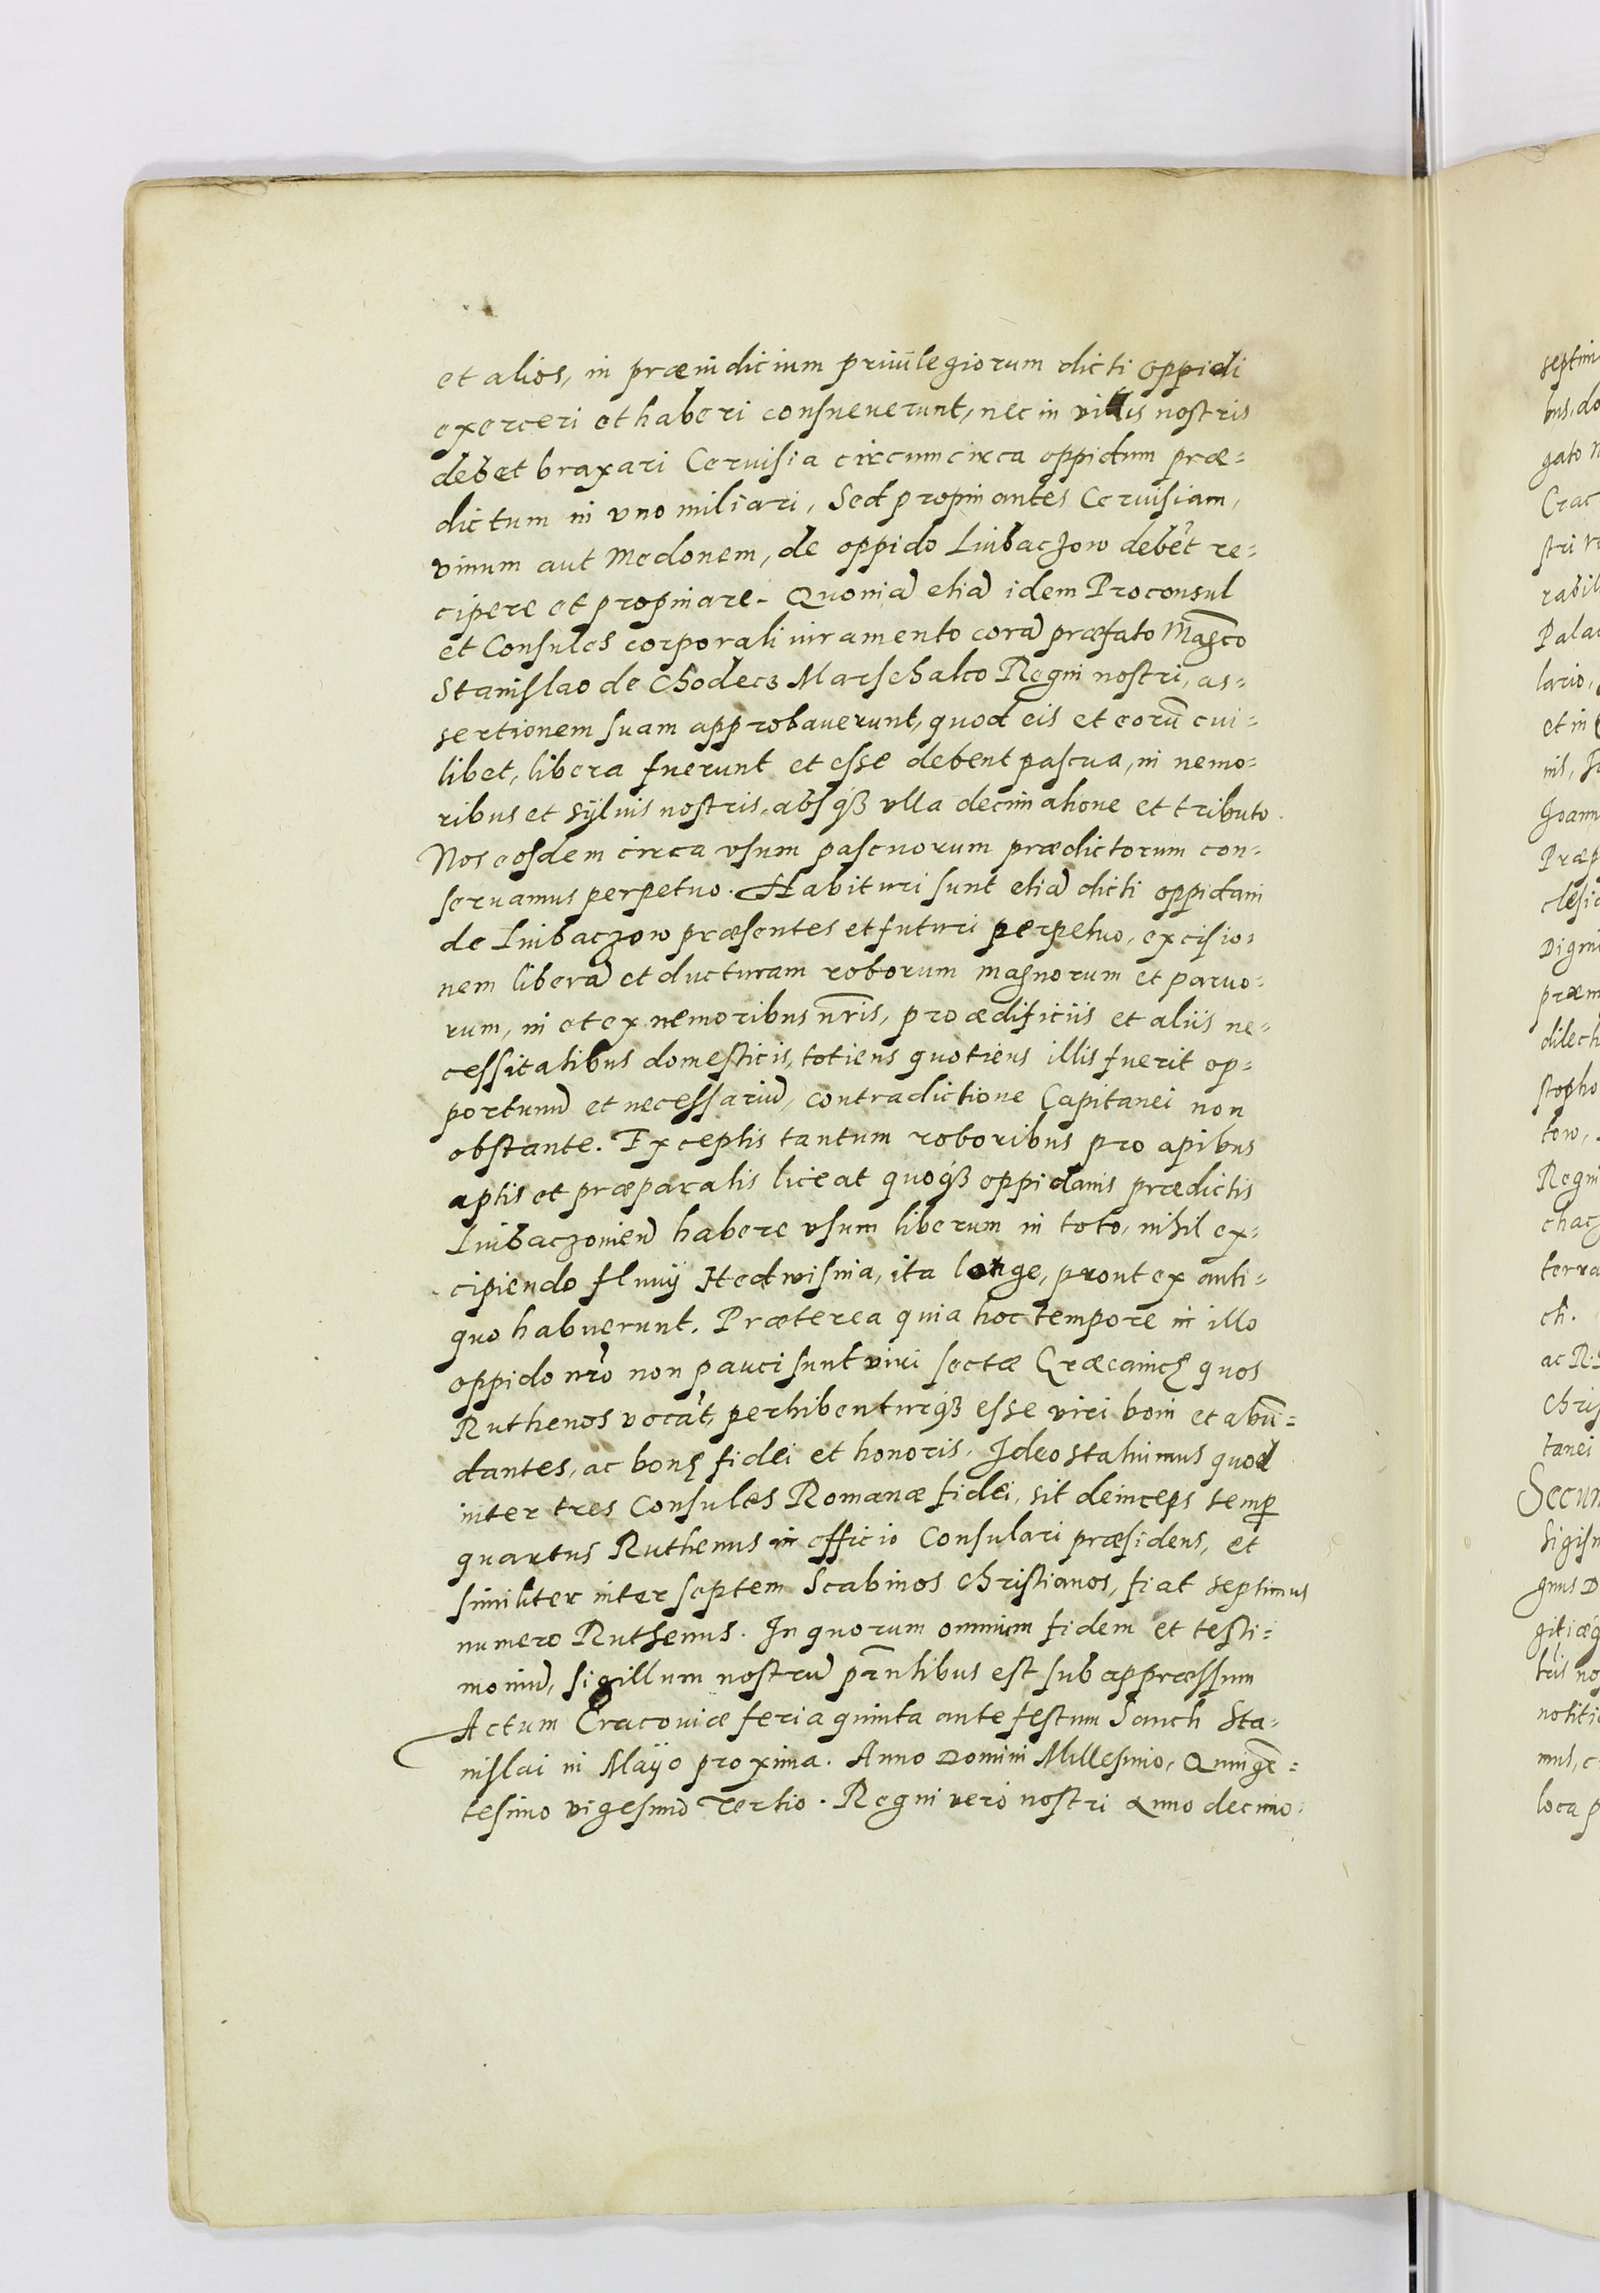 et alios, in præiudicium priuilegiorum dicti oppidi
exerceri et haberi consueuerunt, nec in villis nostris
debet braxari Ceruisia circumcirca oppidum præ=
dictum in vno miliari, Sed propinantes Ceruisiam,
vinum aut Medonem, de oppido Liubaczow debēt re=
cipere et propinare. Quoniā etiā idem Proconsul
et Consules corporali iuramento corā præfato Magco
Stanislao de Chodecz Marschalco Regni nostri, as=
sertionem suam approbauerunt, quod eis et eorū cui=
libet, libera fuerunt et esse debent pascua, in nemo=
ribus et sÿluis nostris, absq3 vlla decimatione et tributo.
Nos eosdem circa vsum pascuorum prædictorum con=
seruamus perpetuo. Habituri sunt etiā dicti oppidani
de Liubaczow præsentes et futuri perpetuo, excisio=
nem liberā et ducturam roborum magnorum et paruo=
rum, in et ex nemoribus nr̄is, pro ædificiis et aliis ne=
cessitatibus domesticis, totiens quotiens illis fuerit op=
portunū et necessariū, contradictione Capitanei non
obstante. Exceptis tantum roboribus pro apibus
aptis et præparatis liceat quoq3 oppidanis prædictis
Liubaczonien̄ habere vsum liberum in toto, nihil ex=
cipiendo fluuÿ Hedwisnia, ita longe, prout ex anti=
quo habuerunt. Præterea quia hoc tempore in illo
oppido nr̄o non pauci sunt viri sectæ Græcanicę quos
Ruthenos vocāt, perhibenturq3 esse viri boni et abū=
dantes, ac bonę fidei et honoris, Ideo statuimus quod
inter tres Consules Romanæ fidei, sit deinceps semp̄
quartus Ruthenus in officio Consulari præsidens, et
similiter inter septem Scabinos Christianos, fiat septimus
numero Ruthenus. In quorum omnium fidem et testi=
moniū, sigillum nostrū pr̄ntibus est subappressum
Actum Cracouiæ feria quinta ante festum Sancti Sta=
nislai in Maÿo proxima. Anno Domini Millesimo, Quingē=
tesimo vigesimo Tertio. Regni vero nostri Anno decimo=
septim
bus, do
gato
Crac
stri
rabil
Pala
lario,
et in
nis,
Joann
Præp
clesi
Digni
præm
dilect
stopho
tow,
Regni
chacz
terra
ch.
ac R.
Chris
tanei
Secun
Sigism
gnus D
giti
tris no
notiti
mus, c
loca p